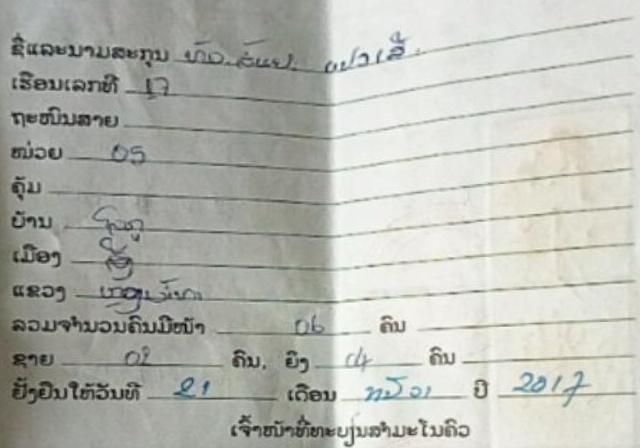 ຊື່ແລະນາມສະກຸນ ທ້າວ
ເຮືອນເລກທີ 17
ຖະໜົນສາຍ
ໜ່ວຍ 05
ຄຸ້ມ
ບ້ານ
ເມືອງ ສິງ
ແຂວງ ຫຼວງນໍ້າທາ
ລວມຈຳນວນຄົນມີໜ້າ 06 ຄົນ
ຊາຍ 02 ຄົນ, ຍິງ 04 ຄົນ
ຢັ້ງຢືນໃຫ້ວັນທີ 21 ເດືອນ ທັນວາ ປີ 2017
ເຈົ້າໜ້າທີ່ທະບຽນສຳມະໂນຄົວ